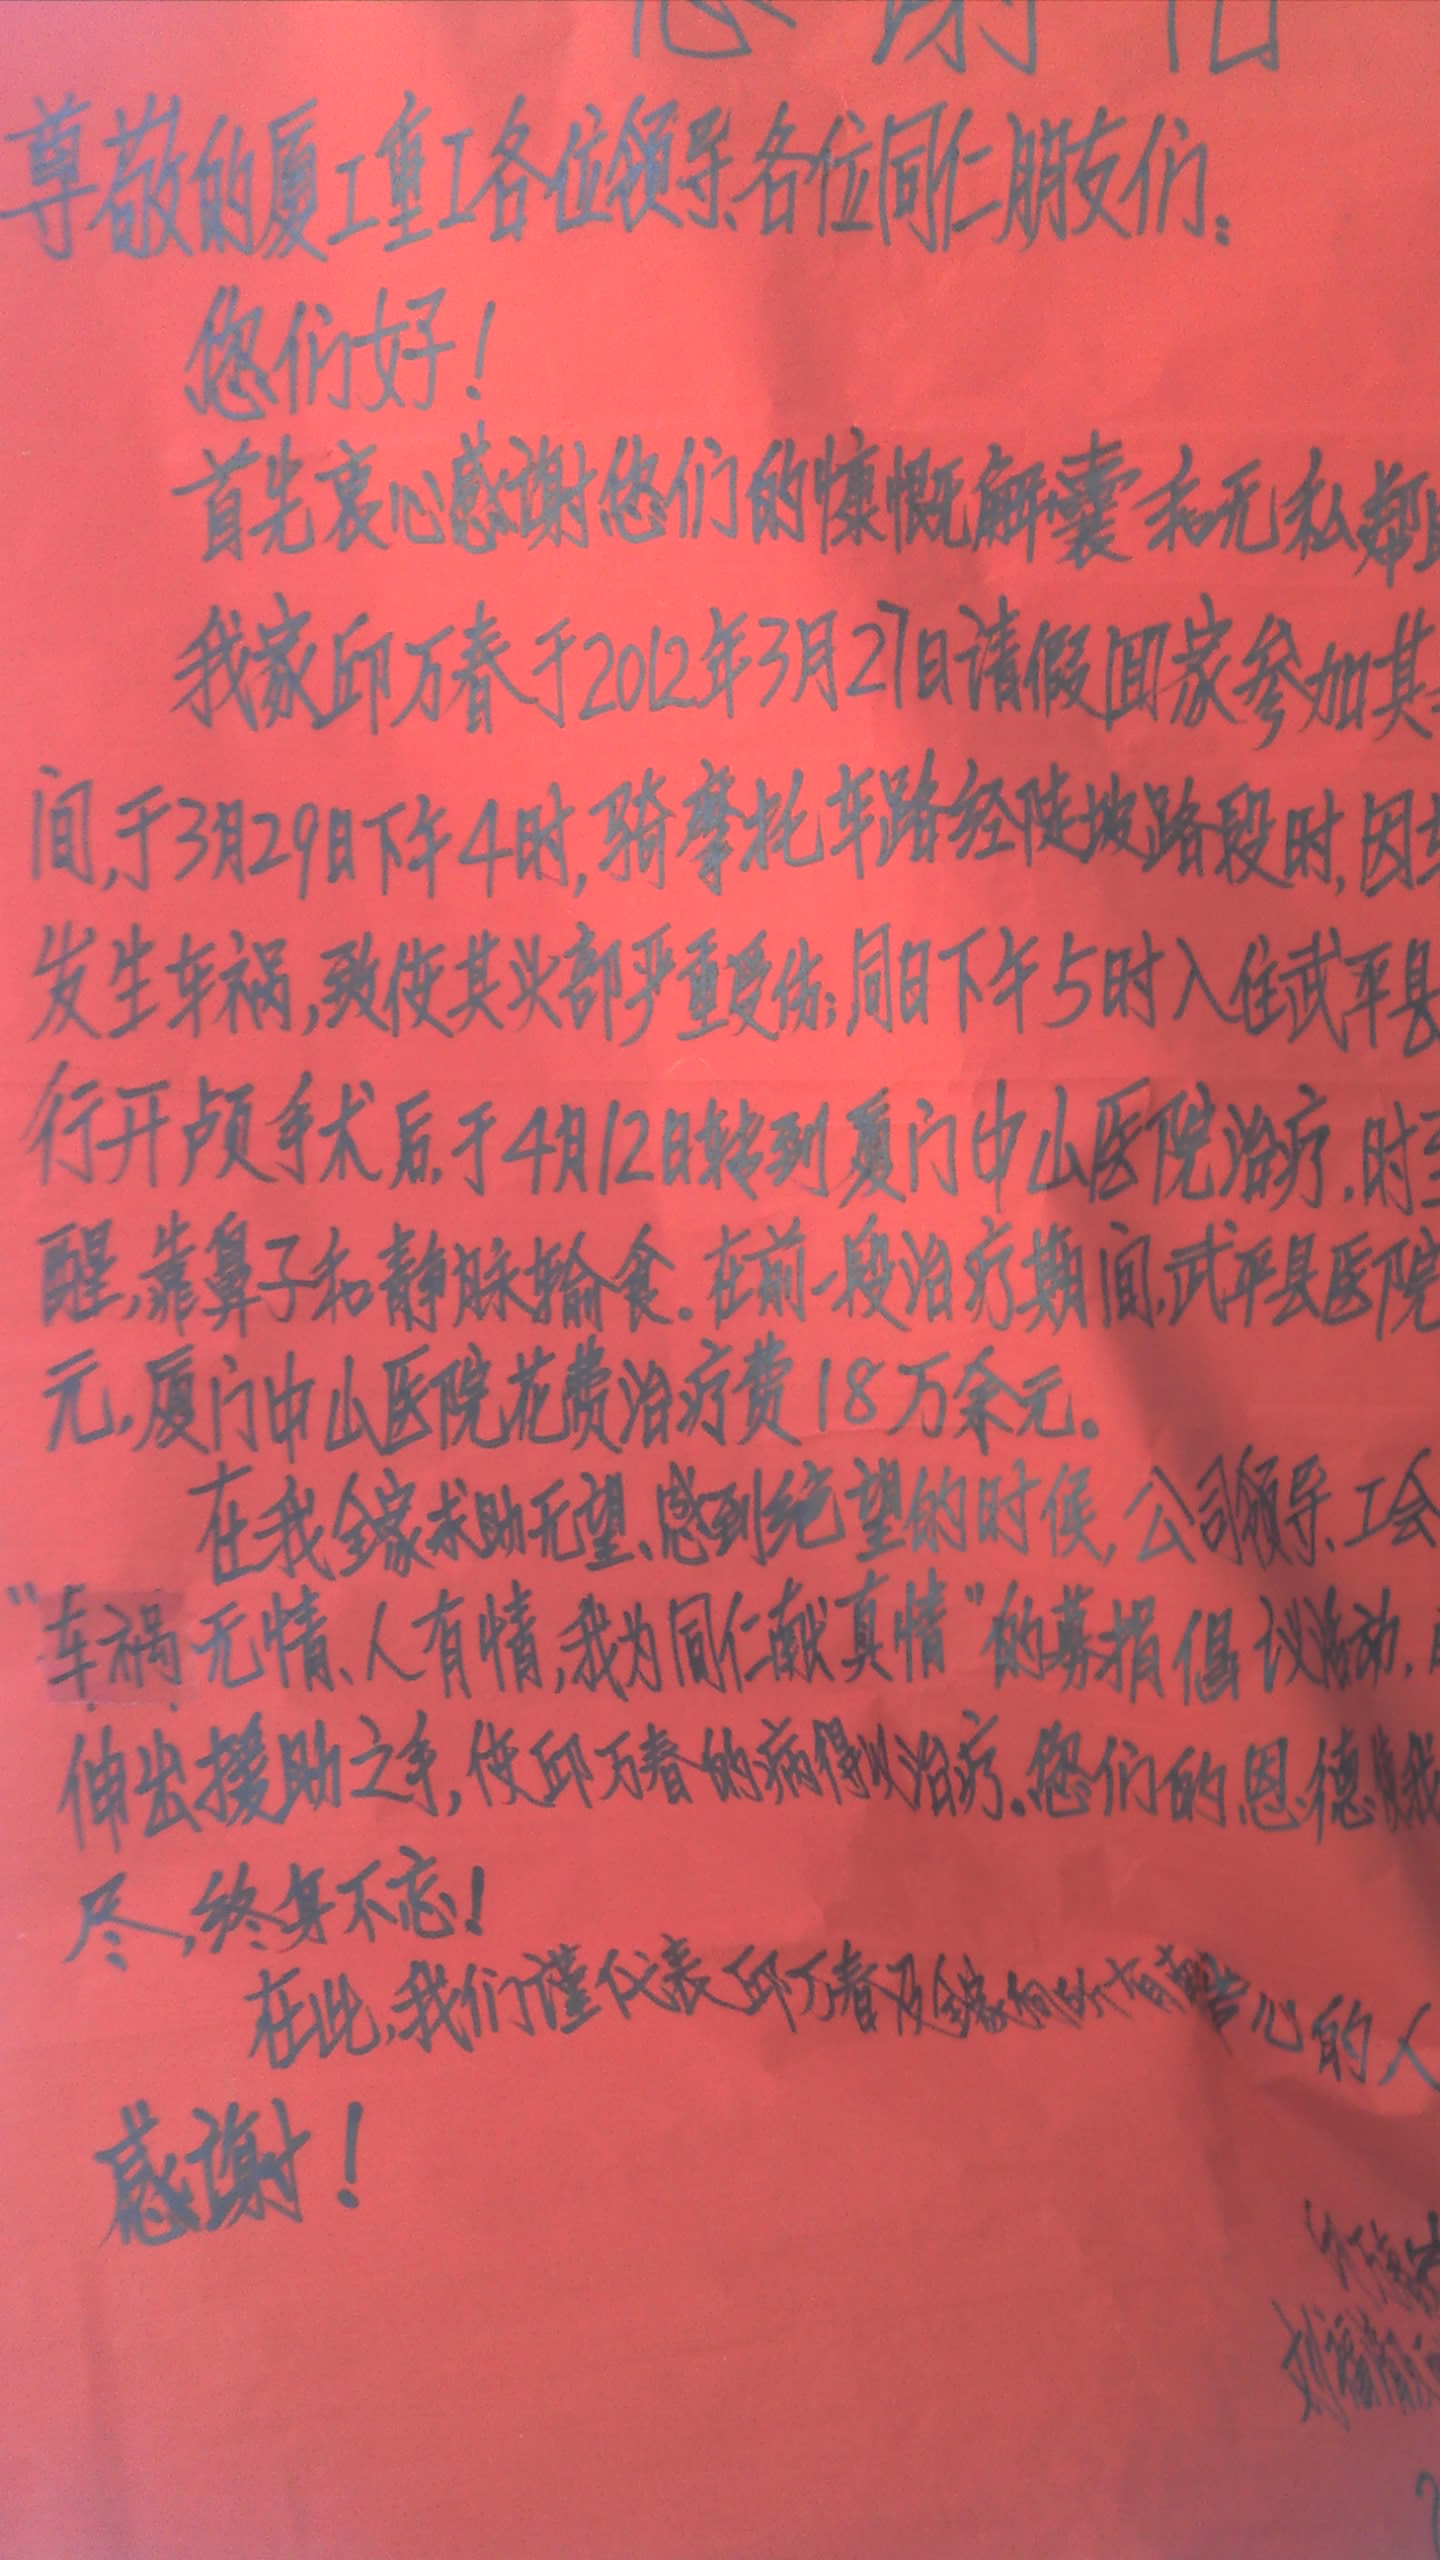 感谢信
尊敬的厦工重工各位领导、各位同仁朋友们:
您们好!
首先衷心感谢您们的慷慨解囊和无私帮
我家邱万春于2012年3月27日请假回家参加其
间,于3月29日下午4时,骑摩托车路经陡坡路段时,因
发生车祸,致使其头部严重受伤;同日下午5时入住武平县
行开颅手术后,于4月12日转到厦门中山医院治疗.时至
醒,靠鼻子和静脉输食.在前一段治疗期间,武平县医院
元,厦门中山医院花费治疗费18万余元。
在我全家求助无望、感到绝望的时候,公司领导、工会
“车祸无情、人有情,我为同仁献真情”的募捐倡议活动,
伸出援助之手,使邱万春的病得以治疗.您们的恩德使我
尽,终身不忘!
在此,我们谨代表邱万春及全家向所有 心的人
感谢!